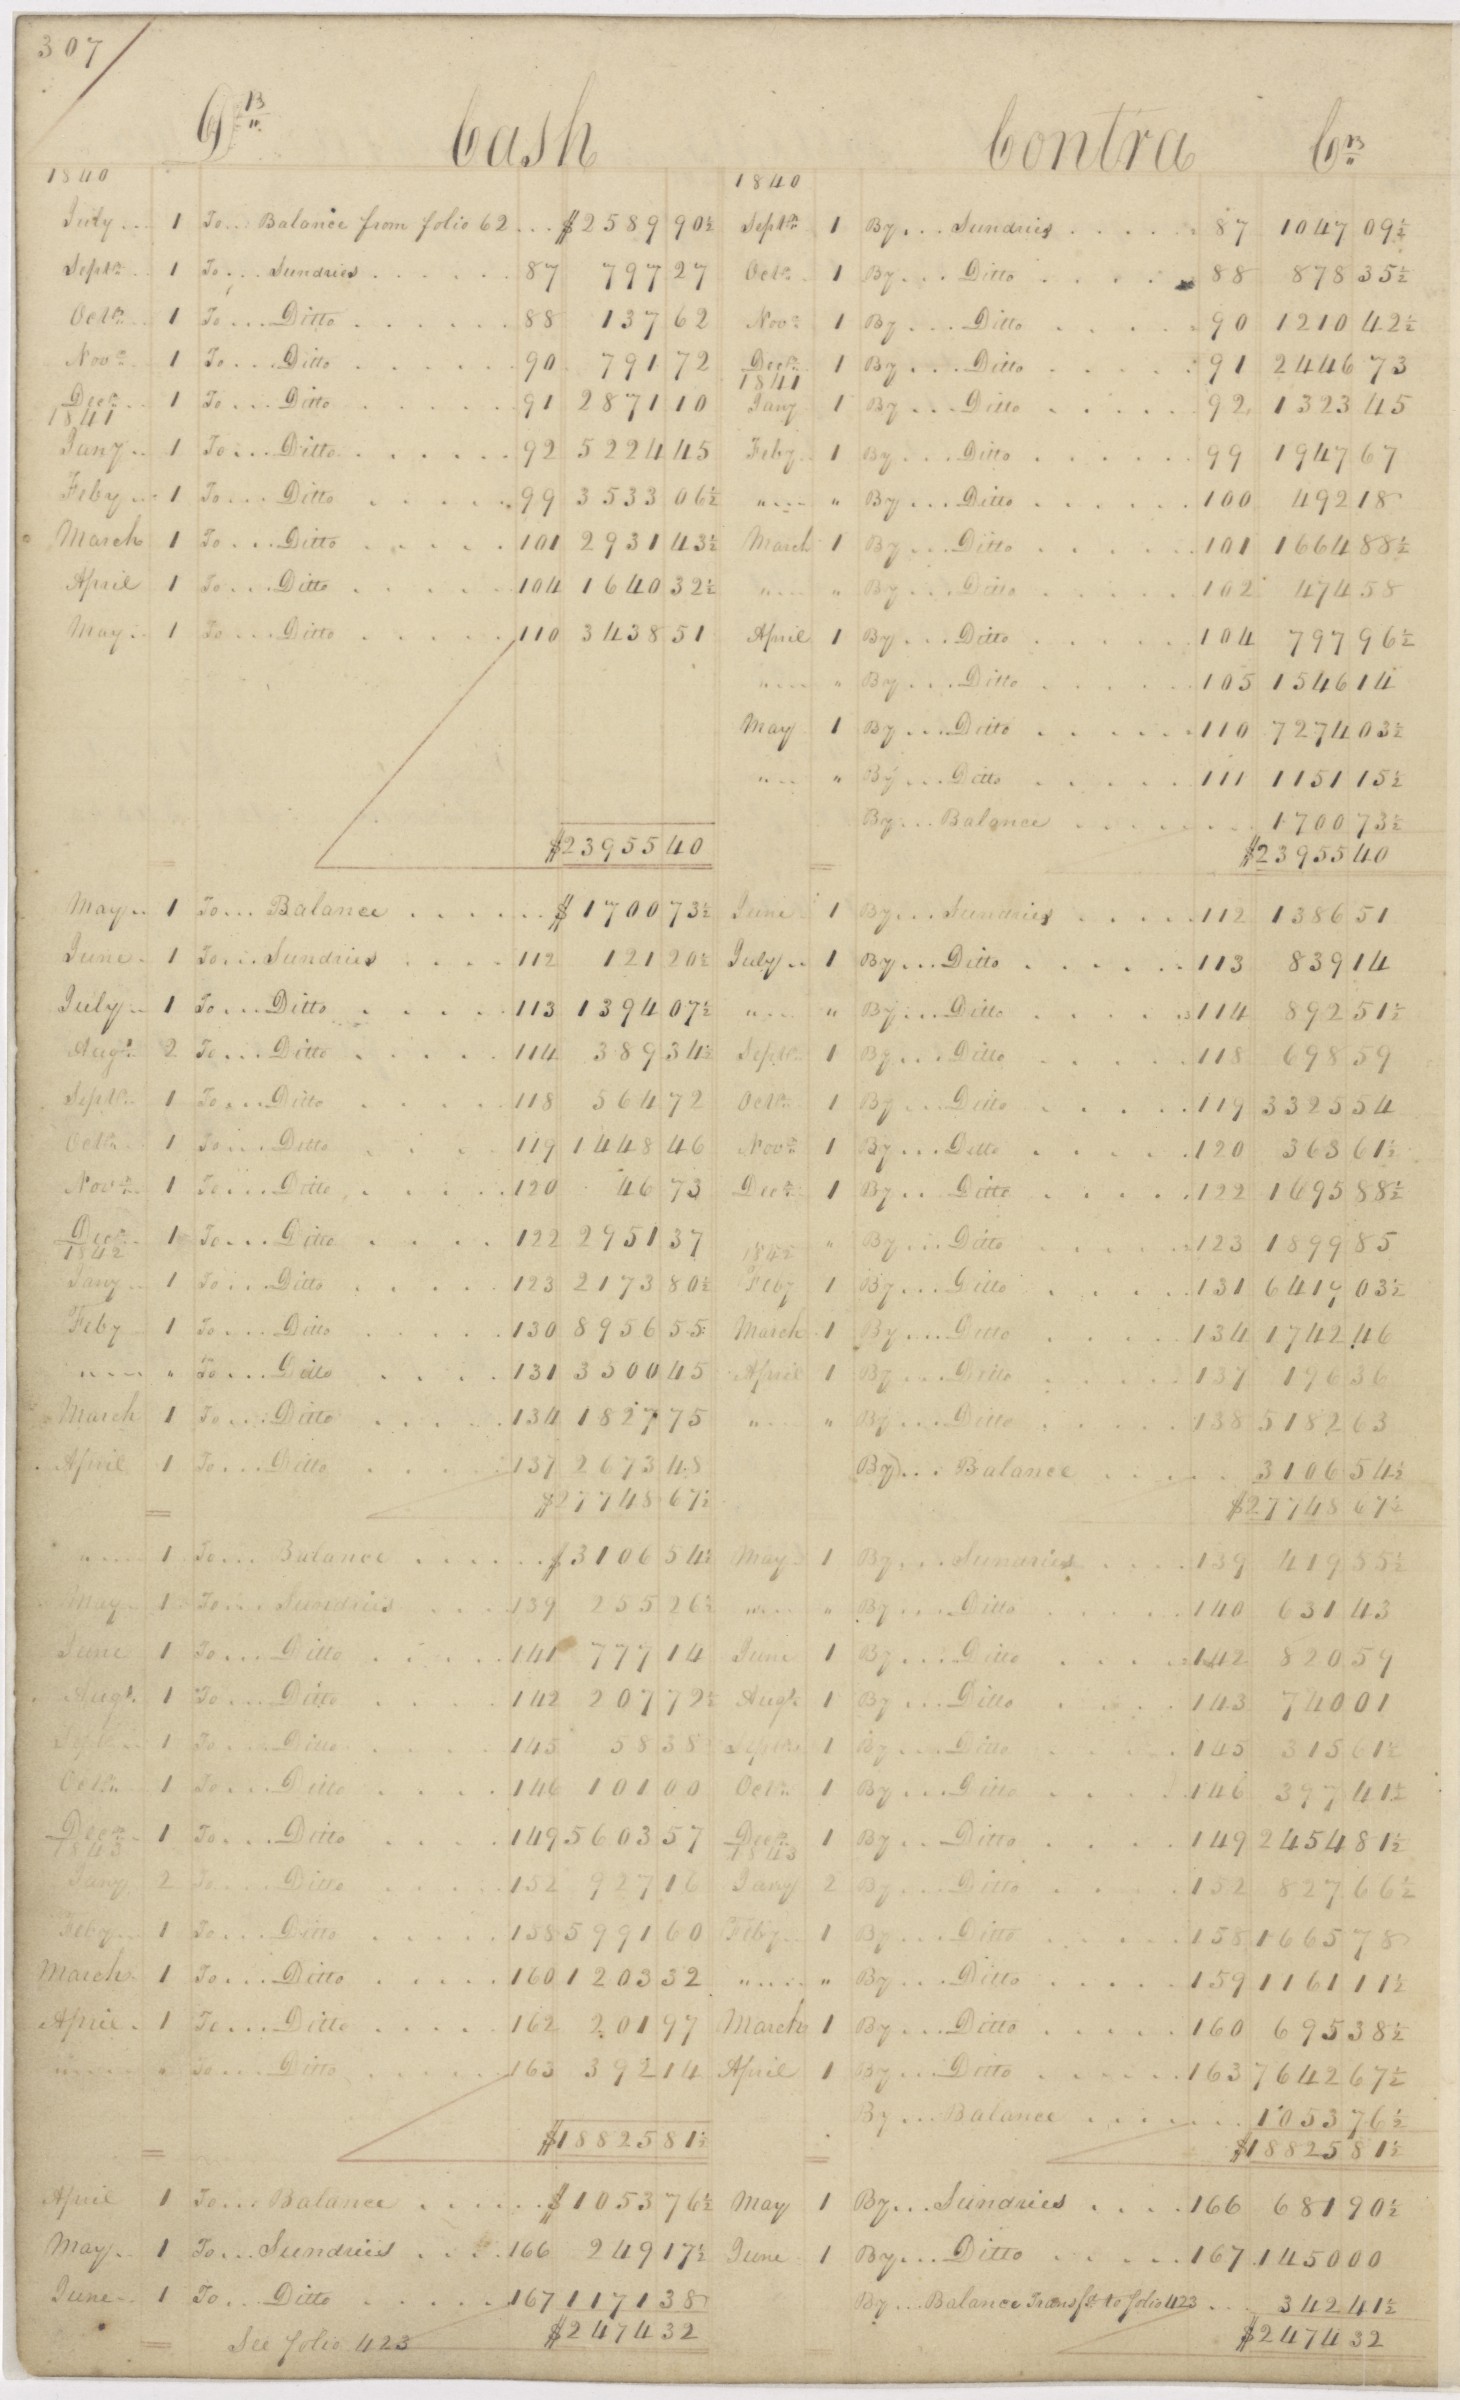 307
Dr Cash Contra Cr
1840 1840
July 1 To Balance from folio 62 $2589 90½ Septr 1 By Sundries 87 1047 09½
Septr 1 To Sundries 87 797 27 Octr 1 By Ditto 88 878 35½
Octr 1 To Ditto 88 137 62 Novr 1 By Ditto 90 1210 42½
Novr 1 To Ditto 90 791 72 Decr 1 By Ditto 91 2446 73
1841
Decr 1 To Ditto 91 2871 10 Jany 1 By Ditto 92 1323 45
1841
Jany 1 To Ditto 92 5224 45 Feby 1 By Ditto 99 1947 67
Feby 1 To Ditto 99 3533 06½ " " By Ditto 100 492 18
March 1 To Ditto 101 2931 43½ March 1 By Ditto 101 1664 88½
April 1 To Ditto 104 1640 32½ " " By Ditto 102 474 58
May 1 To Ditto 110 3438 51 April 1 By Ditto 104 797 96½
" " By Ditto 105 1546 14
May 1 By Ditto 110 7274 03½
" " By Ditto 111 1151 15½
By Balance 1700 73½
$23955 40 $23955 40
May 1 To Balance $1700 73½ June 1 By Sundries 112 1386 51
June 1 To Sundries 112 121 20½ July 1 By Ditto 113 839 14
July 1 To Ditto 113 1394 07½ " " By Ditto 114 892 51½
Augt 2 To Ditto 114 389 34½ Septr 1 By Ditto 118 698 59
Septr 1 To Ditto 118 564 72 Octr 1 By Ditto 119 3325 54
Octr 1 To Ditto 119 1448 46 Novr 1 By Ditto 120 363 61½
Novr 1 To Ditto 120 46 73 Decr 1 By Ditto 122 1695 88½
Decr 1 To Ditto 122 2951 37 " By Ditto 123 1899 85
1842 1842
Jany 1 To Ditto 123 2173 80½ Feby 1 By Ditto 131 6419 03½
Feby 1 To Ditto 130 8956 55 March 1 By Ditto 134 1742 46
" " To Ditto 131 3500 45 April 1 By Ditto 137 196 36
March 1 To Ditto 134 1827 75 " " By Ditto 138 5182 63
April 1 To Ditto 137 2673 48 By Balance 3106 54½
$27748 67½ $27748 67½
" 1 To Balance $3106 54½ May 1 By Sundries 139 419 55½
May 1 To Sundries 139 255 26½ " " By Ditto 140 631 43
June 1 To Ditto 141 777 14 June 1 By Ditto 142 820 59
Augt 1 To Ditto 142 207 72½ Augt 1 By Ditto 143 740 01
Septr 1 To Ditto 145 58 38 Septr 1 By Ditto 145 315 61½
Octr 1 To Ditto 146 101 00 Octr 1 By Ditto 146 397 41½
Decr 1 To Ditto 149 5603 57 Decr 1 By Ditto 149 2454 81½
1843 1843
Jany 2 To Ditto 152 927 16 Jany 2 By Ditto 152 827 66½
Feby 1 To Ditto 158 5991 60 Feby 1 By Ditto 158 1665 78
March 1 To Ditto 160 1203 32 " " By Ditto 159 1161 11½
April 1 To Ditto 162 201 97 March 1 By Ditto 160 695 38½
" " To Ditto 163 392 14 April 1 By Ditto 163 7642 67½
By Balance 1053 76½
$18825 81½ $18825 81½
April 1 To Balance $1053 76½ May 1 By Sundries 166 681 90½
May 1 To Sundries 166 249 17½ June 1 By Ditto 167 1450 00
June 1 To Ditto 167 1171 38 By Balance Transfd to folio 423 342 41½
See folio 423 $2474 32 $2474 32